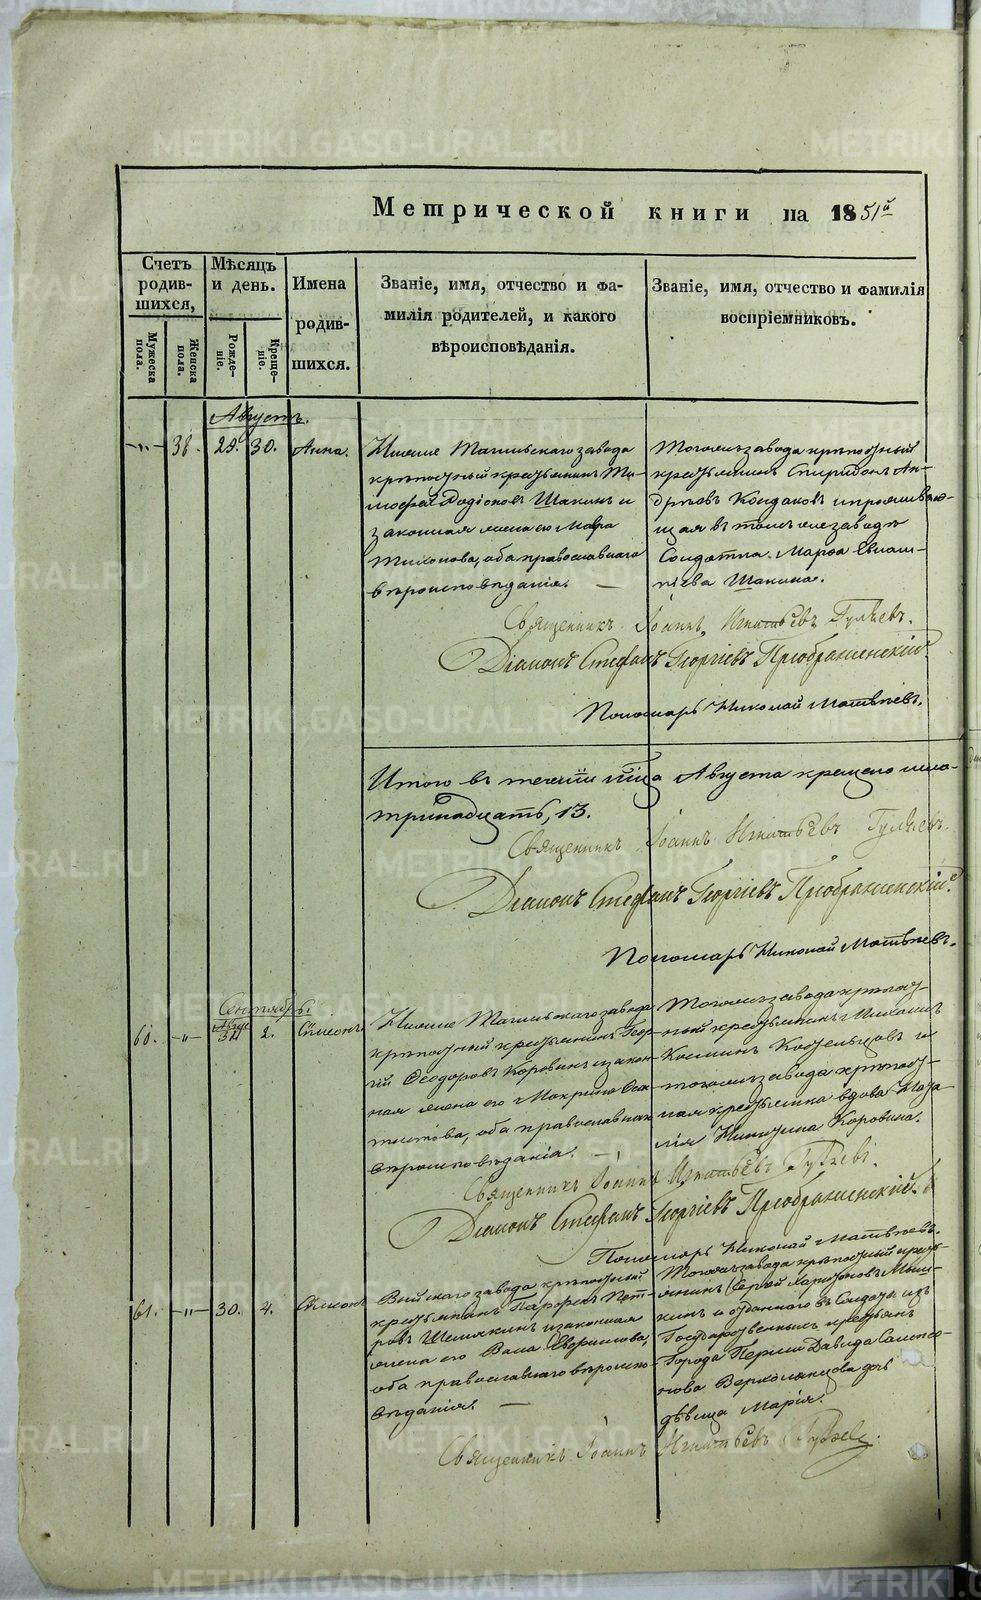 Метрической книги на 1851й
Счетъ родив-шихся,
Мѣсяцъ и день.
Имена родив-шихся.
Званіе, имя, отчество и фа-
милія родителей, и какого
вѣроисповѣданія.
Званіе, имя, отчество и фамилія
воспріемниковъ.
Мужеска пола.
Женска пола.
Рожде-ніе.
Креще-ніе.
Августъ.
—„— 38. 29. 30. Анна.
Нижне Тагильскаго завода
крѣпостный крестьянинъ Ти-
мофей Родіоновъ Шакинъ и
законная жена его Мавра
Тихонова, оба православнаго
вѣроисповѣданія. —
Тогожъ завода крѣпостный
крестьянинъ Спиридонъ Ан-
дрѣевъ Кондаковъ и проживаю-
щая въ томъ же заводѣ
Солдатка Марѳа
Шакина.
Священникъ Іоаннъ Игнатьевъ Гуляевъ.
Діаконъ Стефанъ Георгіевъ Преображенскій.
Пономарь Николай Матвѣевъ.
Итого въ теченіи мѣсяца Августа крещено
тринадцать, 13.
Священникъ Іоаннъ Игнатьевъ Гуляевъ.
Діаконъ Стефанъ Георгіевъ Преображенскій.
Пономарь Николай Матвѣевъ.
Сентябрь.
60. —„— Авгус 31 2. Сѵмеонъ.
Нижне Тагильскаго завода
крѣпостный крестьянинъ Геор-
гій Ѳеодоровъ Коровинъ и закон-
ная жена его Макрина
оба православнаго
вѣроисповѣданія. —
Тогожъ завода крѣпост-
ный крестьянинъ Михаилъ
Козминъ и
тогожъ завода крѣпост-
ная крестьянка вдова Ната-
лія Никитина Коровина.
Священникъ Іоаннъ Игнатьевъ Гуляевъ.
Діаконъ Стефанъ Георгіевъ Преображенскій.
Пономарь Николай Матвѣевъ.
61. —„— 30. 4. Сѵмеонъ.
Выйскаго завода крѣпостный
крестьянинъ Парфенъ Пет-
ровъ Шемякинъ и законная
жена его Васа Ефримова,
оба православнаго вѣроиспо-
вѣданія. —
Тогожъ завода крѣпостный кресть-
янинъ Сергѣй Харитоновъ Мыш-
кинъ и отданнаго въ Солдаты изъ
Государственныхъ крестьянъ
Города Перми Давида
Верхоланцова дочь
дѣвица Марія.
Священникъ Іоаннъ Игнатьевъ Гуляевъ.
METRIKI.GASO-URAL.RU